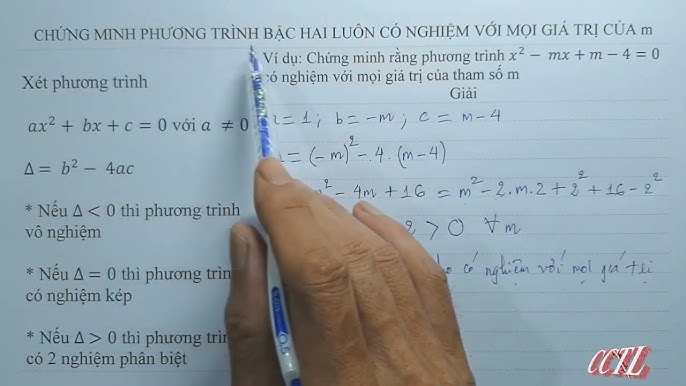 CHỨNG MINH PHƯƠNG TRÌNH BẬC HAI LUÔN CÓ NGHIỆM VỚI MỌI GIÁ TRỊ CỦA m
Xét phương trình
ax² + bx + c = 0 với a ≠ 0
Δ = b² − 4ac
* Nếu Δ < 0 thì phương trình
vô nghiệm
* Nếu Δ = 0 thì phương trình
có nghiệm kép
* Nếu Δ > 0 thì phương trình
có 2 nghiệm phân biệt
Ví dụ: Chứng minh rằng phương trình x² − mx + m − 4 = 0
có nghiệm với mọi giá trị của tham số m
Giải
= 1 ; b = −m ; c = m − 4
= (−m)² − 4 . (m − 4)
m² − 4m + 16 = m² − 2.m.2 + 2² + 16 − 2²
> 0 ∀m
có nghiệm với mọi giá trị
CCTL